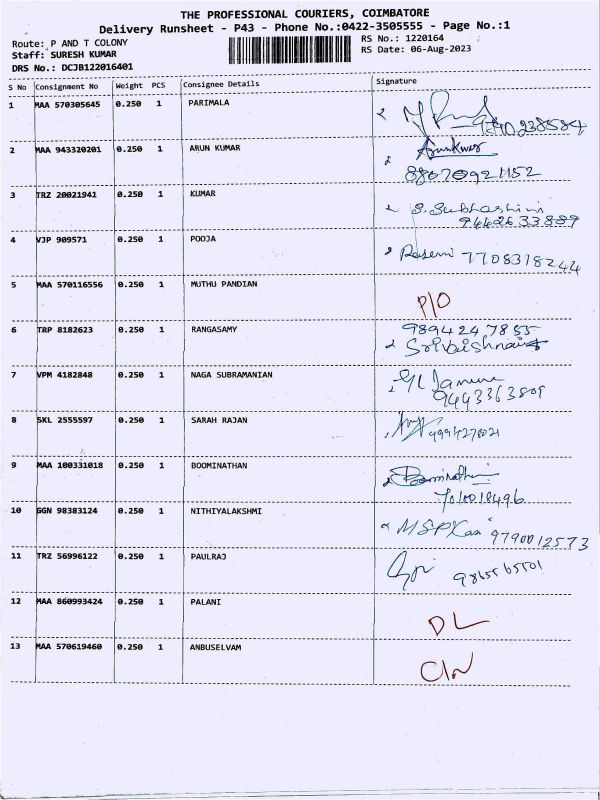 THE PROFESSIONAL COURIERS, COIMBATORE
Delivery Runsheet - P43 - Phone No.:0422-3505555 - Page No.:1
Route: P AND T COLONY
RS No.: 1220164
Staff: SURESH KUMAR
RS Date: 06-Aug-2023
DRS No.: DCJB122016401
S No Consignment No Weight PCS Consignee Details Signature
1 MAA 570305645 0.250 1 PARIMALA
2 MAA 943320201 0.250 1 ARUN KUMAR Arunkumar
88070921152
3 TRZ 20021941 0.250 1 KUMAR S. Subhashini
9442633889
4 VJP 909571 0.250 1 POOJA 7708318244
5 MAA 570116556 0.250 1 MUTHU PANDIAN
P/O
6 TRP 8182623 0.250 1 RANGASAMY 9894247855
7 VPM 4182848 0.250 1 NAGA SUBRAMANIAN
9443363809
8 SKL 2555597 0.250 1 SARAH RAJAN
9 MAA 100331018 0.250 1 BOOMINATHAN Boominathan
10 GGN 98383124 0.250 1 NITHIYALAKSHMI
9790012573
11 TRZ 56996122 0.250 1 PAULRAJ
12 MAA 860993424 0.250 1 PALANI
DL
13 MAA 570619460 0.250 1 ANBUSELVAM